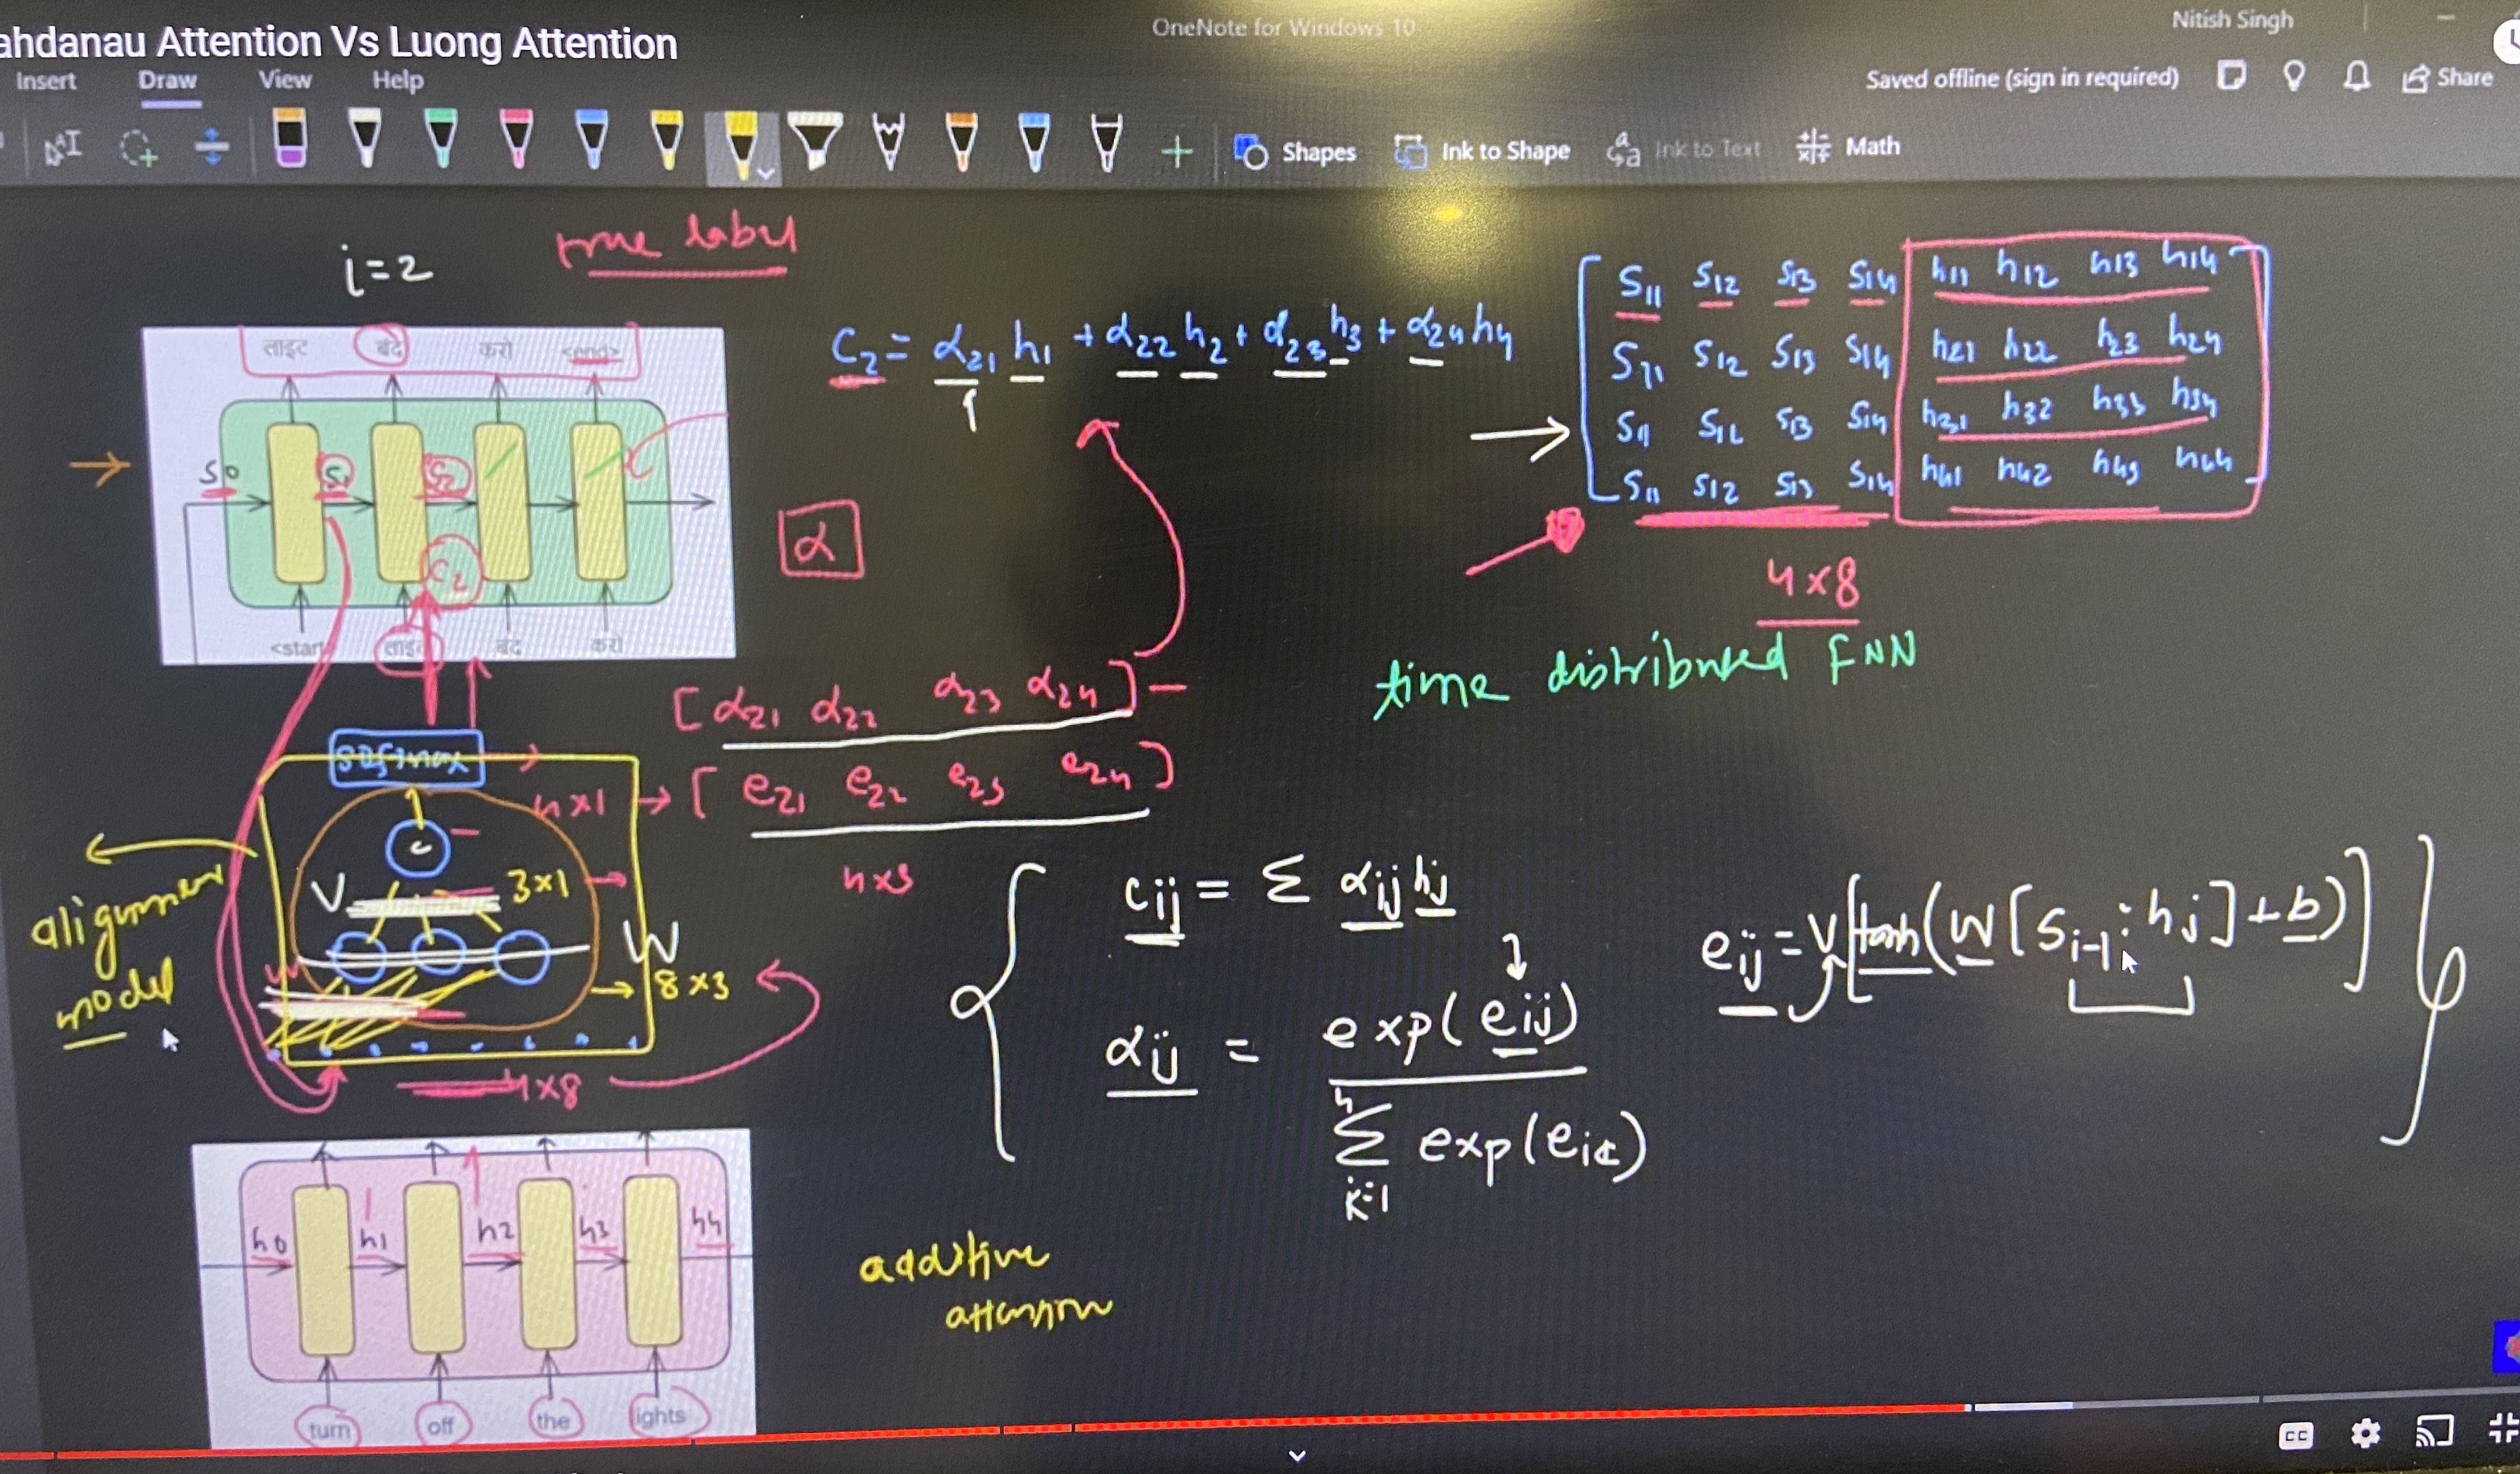 ahdanau Attention Vs Luong Attention
OneNote for Windows 10
Nitish Singh
Insert Draw View Help
Saved offline (sign in required)
Share
Shapes
Ink to Shape
Ink to Text
Math
i=2
true label
लाइट बंद करो <end>
S0 S1 S2
C2
<start लाइट बंद करो
C2 = α21 h1 + α22 h2 + α23 h3 + α24 h4
α
S11 S12 S13 S14 h11 h12 h13 h14
S11 S12 S13 S14 h21 h22 h23 h24
S11 S12 S13 S14 h31 h32 h33 h34
S11 S12 S13 S14 h41 h42 h43 h44
4x8
time distributed FNN
[α21 α22 α23 α24]
softmax
4x1 → [e21 e22 e23 e24]
4x3
e
V 3x1
W
W
8x3
4x8
alignment
model
cij = Σ αij hj
αij = exp(eij)
n
Σ exp(eik)
k=1
eij = V[tanh(W[si-1; hj]+b)]
h0 h1 h2 h3 h4
turn off the lights
additive
attention
CC